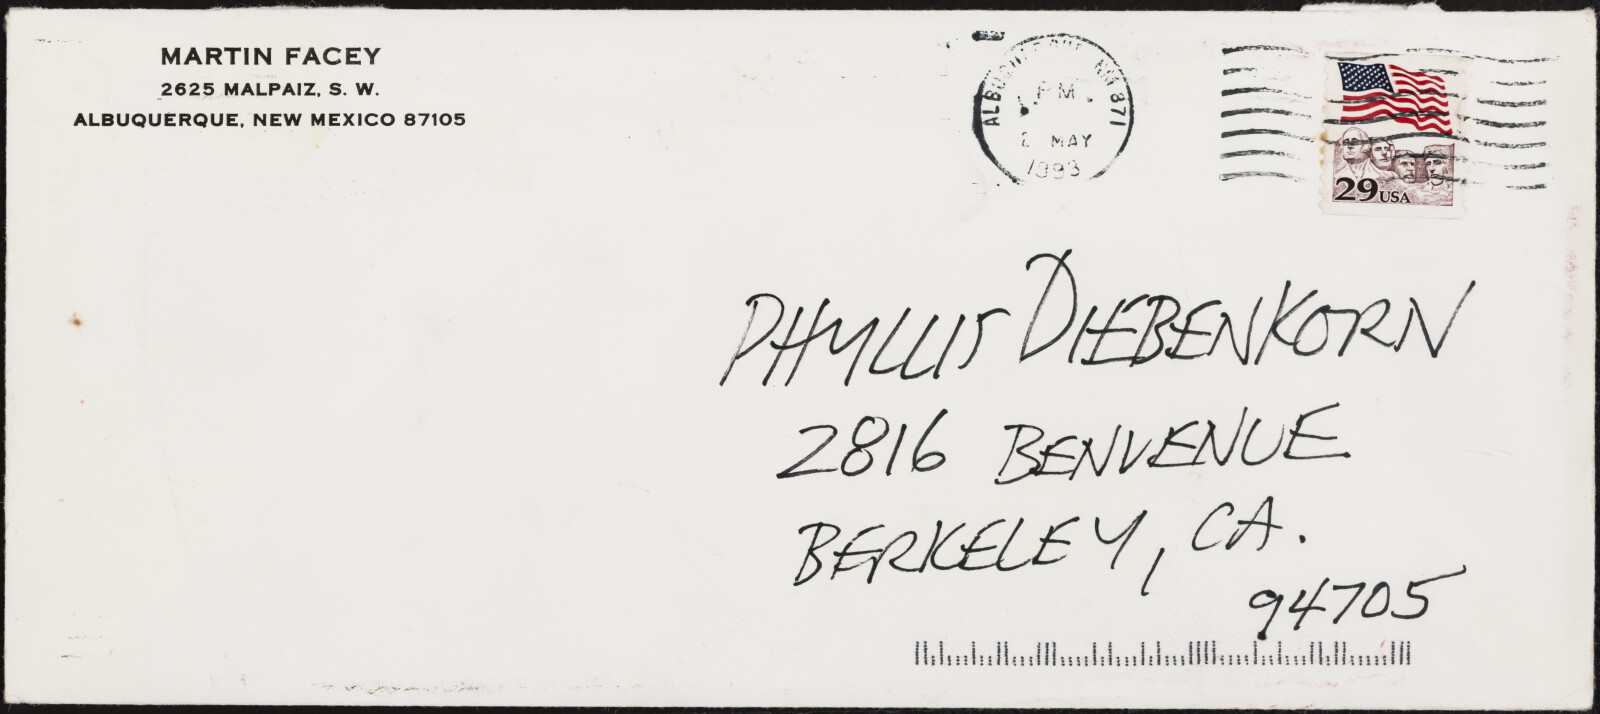 MARTIN FACEY
2625 MALPAIZ, S. W.
ALBUQUERQUE, NEW MEXICO 87105
ALBUQUERQUE NM 871
PM
MAY
1993
29 USA
PHYLLIS DIEBENKORN
2816 BENVENUE
BERKELEY, CA.
94705